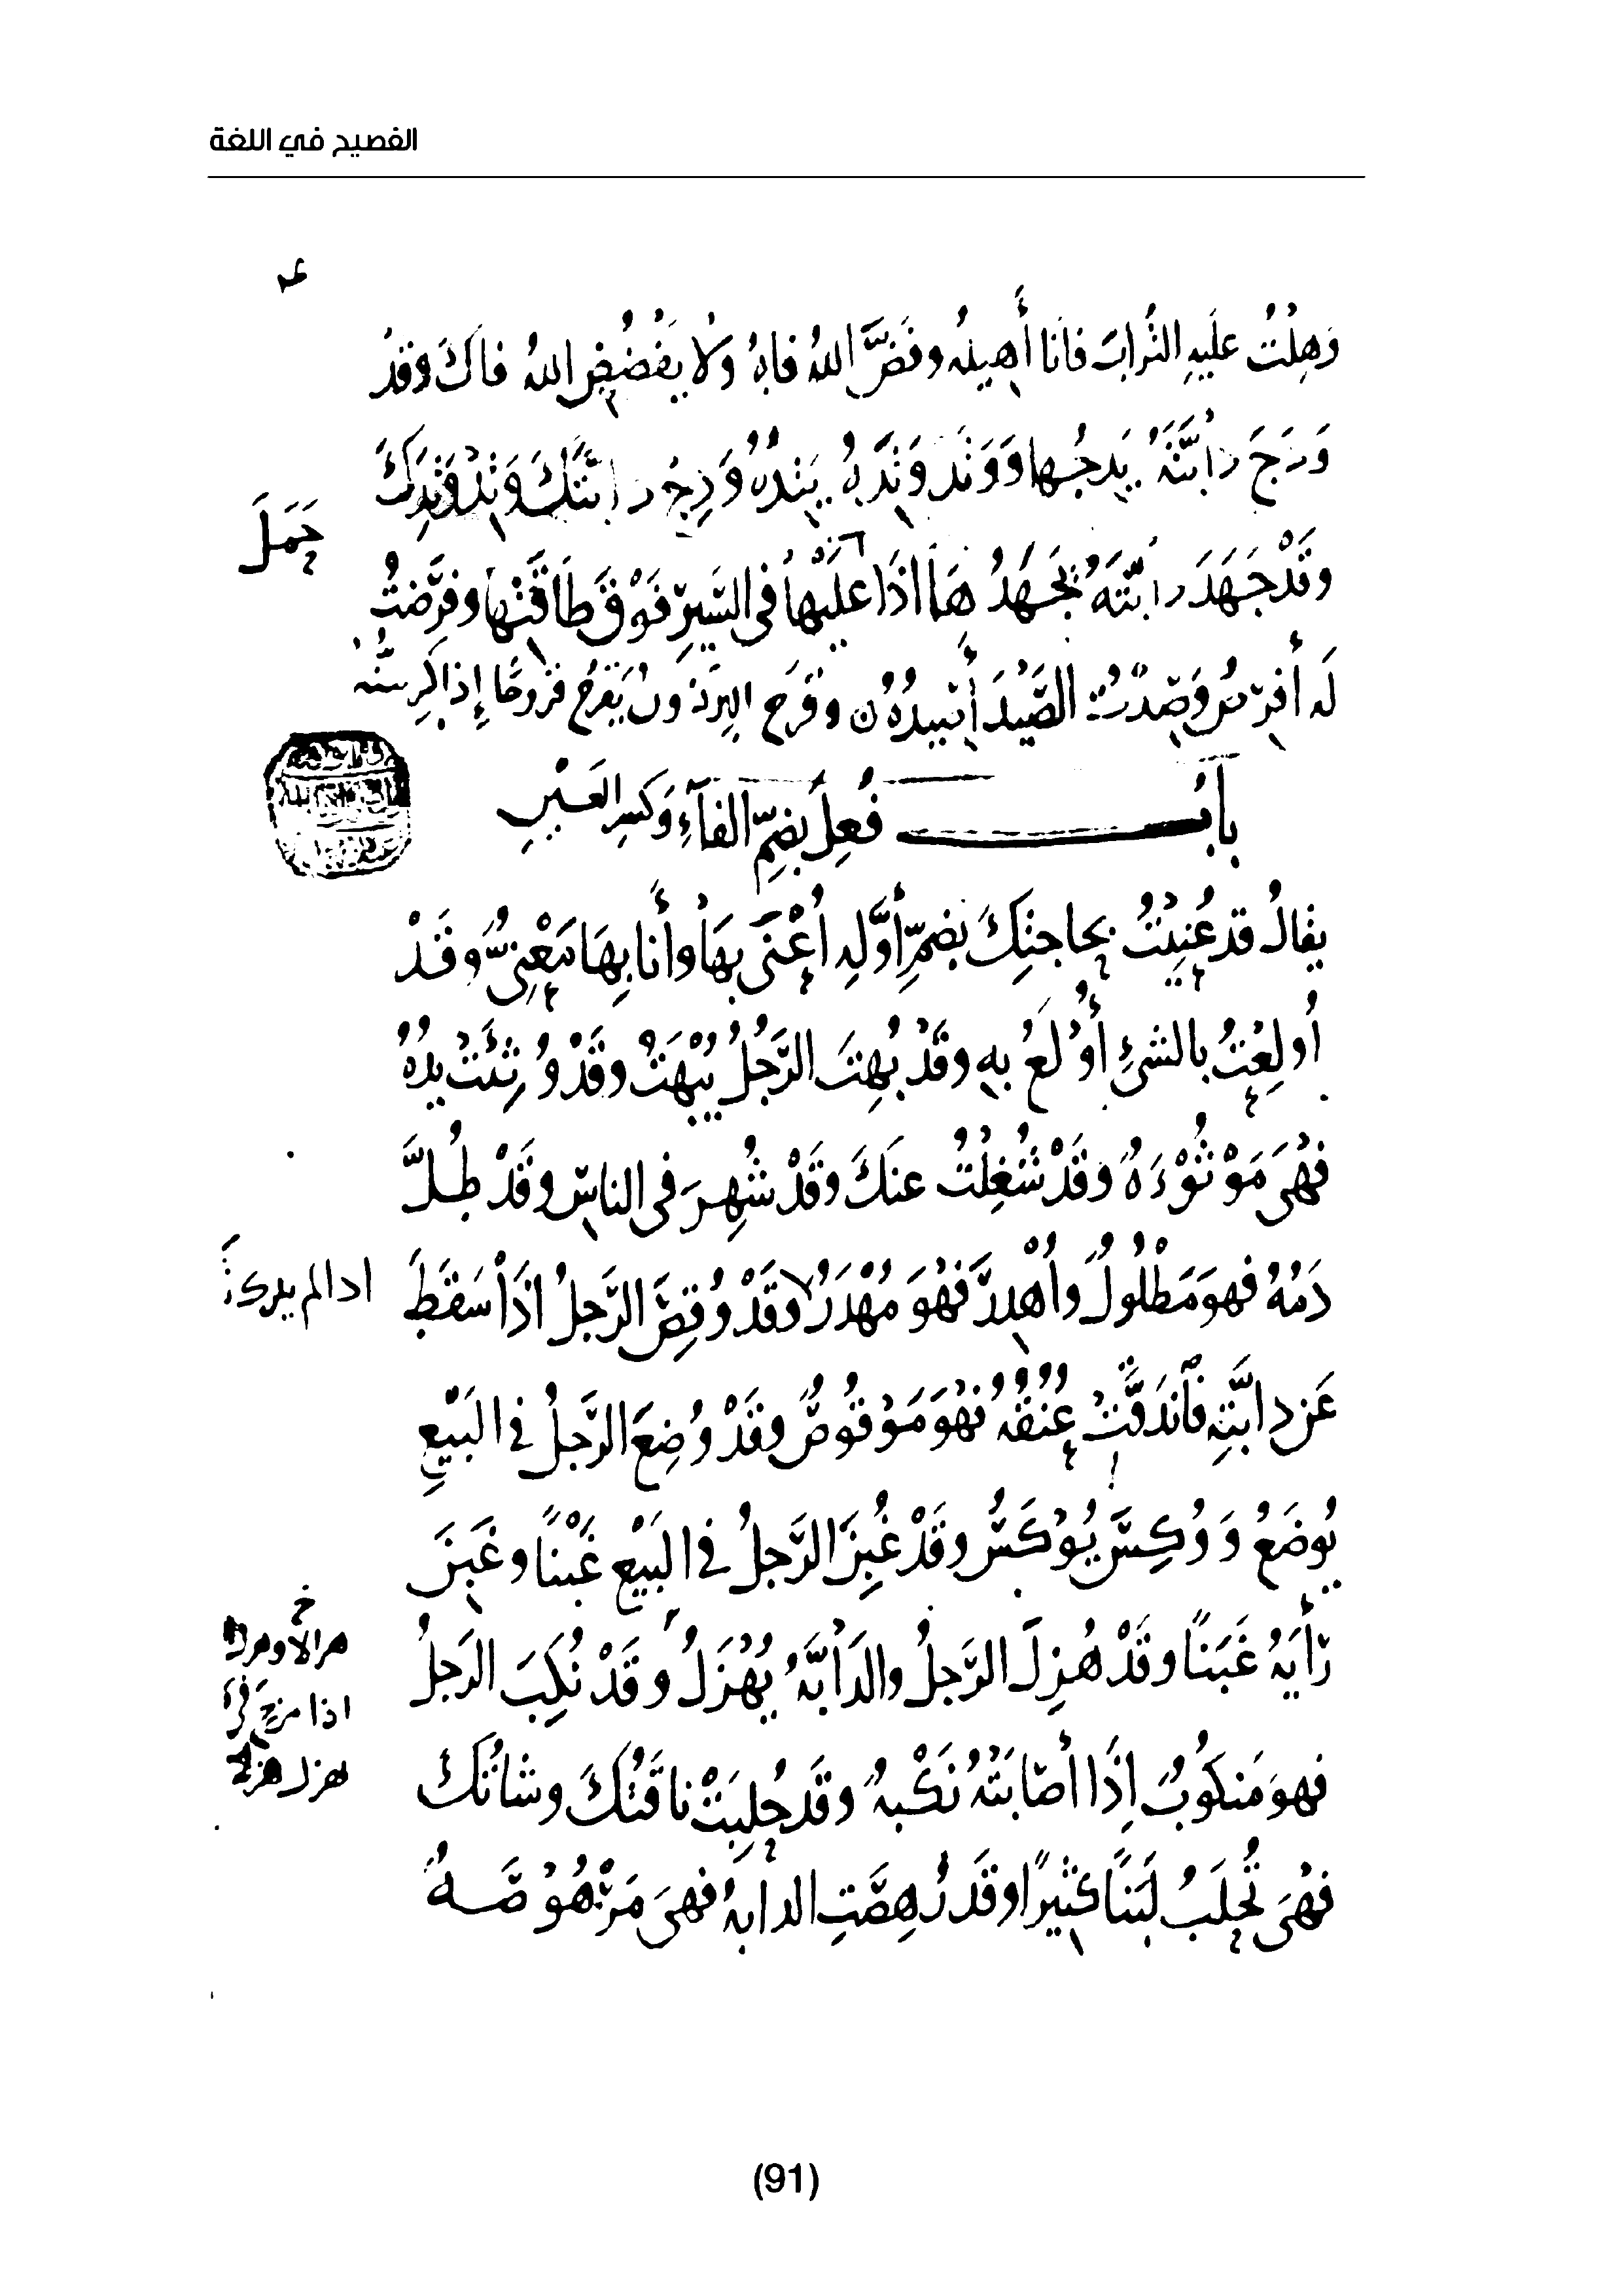 الفصيح في اللغة
وَهِلْتُ عَلَيهِ التُّرابَ فأنا أَهِيلُه وفَضَّ اللهُ فاهُ ولا يَفْضُضِ اللهُ فاكَ وقَدْ
وَدَجَ دابَّتَهُ يَدِجُها وَوَتَدَ وَتَدَهُ يَتِدُهُ وَدِجْ دابَّتَكَ وَتِدْ وَتِدَكَ
وقَدْ جَهَدَ دابَّتَهُ يَجْهَدُ هَا اذَا عَلَيْها فى السَّيرِ فَوْقَ طَاقَتِها وفَرَضْتُ
حَمَلَ
لَه أَفرِضُ وَصِدْتُ الصَّيْدَ أَصِيدُهُ وقَرَحَ البِرذَونُ يَقْرَحُ قُرُوحًا إِذا كَبِرَ سِنُّه
بابُ فُعِلَ بِضَمِّ الفَآءِ وَكَسْرِ العَيْنِ
يقالُ قد عُنِيْتُ بحاجتِكَ بضمِّ أَوَّلِه أُعْنَى بهَا وأَنا بِهَا مَعْنِىٌّ وقَدْ
أُولِعْتُ بالشئِ أُوْلَعُ به وقَدْ بُهِتَ الرَّجُلُ يُبْهَتُ وقَدْ وُثِئَتْ يدُهُ
فهْىَ مَوْثُوْءَةٌ وقَدْ شُغِلْتُ عنكَ وقَدْ شُهِرَ فى الناسِ وقَدْ طُلَّ
دَمُهُ فهوَ مَطْلُولٌ وأُهْدِرَ فَهْوَ مُهْدَرٌ وقَدْ وُقِصَ الرَّجلُ اذَا سَقَطَ
عَن دابَّتِهِ فَٱندَقَّتْ عُنُقُهُ فهْوَ مَوْقُوصٌ وقَدْ وُضِعَ الرَّجلُ في البَيْعِ
يُوضَعُ وَوُكِسَ يُوْكَسُ وقَدْ غُبِنَ الرَّجلُ في البَيْعِ غَبْنًا وغَبِنَ
رَأْيَهُ غَبَنًا وقَدْ هُزِلَ الرَّجلُ والدَابَّهُ يُهْزَلُ وقَدْ نُكِبَ الرَجلُ
فهوَ مَنكوُبٌ اِذَا أصَابَتْهُ نَكْبهٌ وقَد حُلِبَتْ ناقَتُكَ وشاتُكَ
فهْىَ تُحلَبُ لَبَنًا كثِيرًا وقَد رُهِصَتِ الدابهُ فهىَ مَرْهُوصَهٌ
(91)